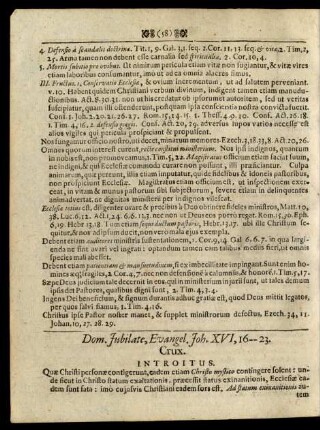 (58)
4. Defensio à scandalis doctrinæ. Tit. 1, 9. Gal. 1,3. seq. 2. Cor. 11, 13. seq. & c. 2. Tim. 2,
25. Arma tamen non debent esse carnalia sed spiritualia, 2. Cor. 10, 4.
5. Mortis subitio pro ovibus. Ut nimirum pericula etiam vitæ non fugiantur, & vitæ vires
etiam laboribus consumantur, imo ut adea omnia alacres simus.
III. Fructus. 1. Conservatio Ecclesiæ, & ovium incrementum, ut ad salutem perveniant.
v. 10. Habent quidem Christiani verbum divinum, indigent tamen etiam manudu-
ctionibus. Act. 8. 30. 31. non ut his credatur ob ipsorumet autoritatem, sed ut veritas
suscipiatur, quam illi ostenderunt, postquam ipsa conscientia nostra convicta fuerit.
Conf. 1. Joh. 2. 20. 21. 26. 27. Rom. 15, 14. 15. 1. Thess. 4. 9. 10. Conf. Act. 26. 18.
1. Tim. 4, 16. 2. defensio gregis. Conf. Act. 20, 29. adversus lupos varios necesse est
alios vigiles qui periculis prospiciant & propulsent.
Nos fungamur officio nostro, ut doceri, minarum memores. Ezech. 3, 18. 33, 8. Act. 20, 26.
Omnes quorum interest curent, recte institui ministerium. Nos ipsi indignos, quantum
in nobis est, non promoveamus. 1. Tim. 5, 22. Magistratus officium etiam facta suum,
ne indigni, & qui Ecclesiæ commoda curare non possunt, illi præficiantur. Culpa
animarum, quæ pereunt, illis etiam imputabitur, qui de fidelibus & idoneis pastoribus,
non prospiciunt Ecclesiæ. Magistratus etiam officium est, ut inspectionem exer-
ceat, in vitam & munus pastorum sibi subjectorum, severe etiam in delinquentes
animadvertat, ne dignitas ministerii per indignos vilescat.
Ecclesiæ totius est, diligenter orare & precibus à Deo obtinere fideles ministros, Matt. 10,
38. Luc. 6. 12. Act. 1, 24. 6, 6. 13, 3. nec non ut Deus eos porro regat. Rom. 15, 30. Eph.
6, 19. Hebr. 13. 18. Tum etiam sequi ductum pastoris, Hebr. 13, 17. ubi ille Christum se-
quitur, & nos ad ipsum ducit, non vero mala ejus exempla.
Debent etiam auditores ministris sustentationem, 1. Cor. 9, 14. Gal. 6. 6. 7. in qua largi-
unda ne sint avari vel ingrati: optandum tamen cum talibus mediis fieri, ut omnis
species mali abesset.
Debent etiam patientiam & mansuetudinem, si ex imbecillitate impingant. Sunt enim ho-
mines &c. fragiles, 2. Cor. 4, 7. nec non defensionem à calumniis, & honore. 1. Tim. 5, 17.
Sæpe Deus judicium tale decernit in eos, qui in ministerium injurii sunt, ut tales demum
ipsis det Pastores, qualibus digni sint, 2. Tim. 4, 3. 4.
Ingens Dei beneficium, & signum durantis adhuc gratiæ est, quod Deus mittit legatos,
per quos salvi fiamus. 1. Tim. 4. 16.
Christus ipse Pastor noster manet, & supplet ministrorum defectus, Ezech. 34, 11.
Johan. 10, 27. 28. 29.
Dom. Jubilate, Evangel. Joh. XVI, 16--23.
Crux.
INTROITUS.
Quæ Christi personæ contigerunt, eadem etiam Christo mystico contingere solent: un-
de sicut in Christo statum exaltationis, præcessit status exinanitionis, Ecclesiæ ea-
dem sunt fata: imo cujusvis Christiani eadem sors est. Ad statum exinanitionis au-
tem